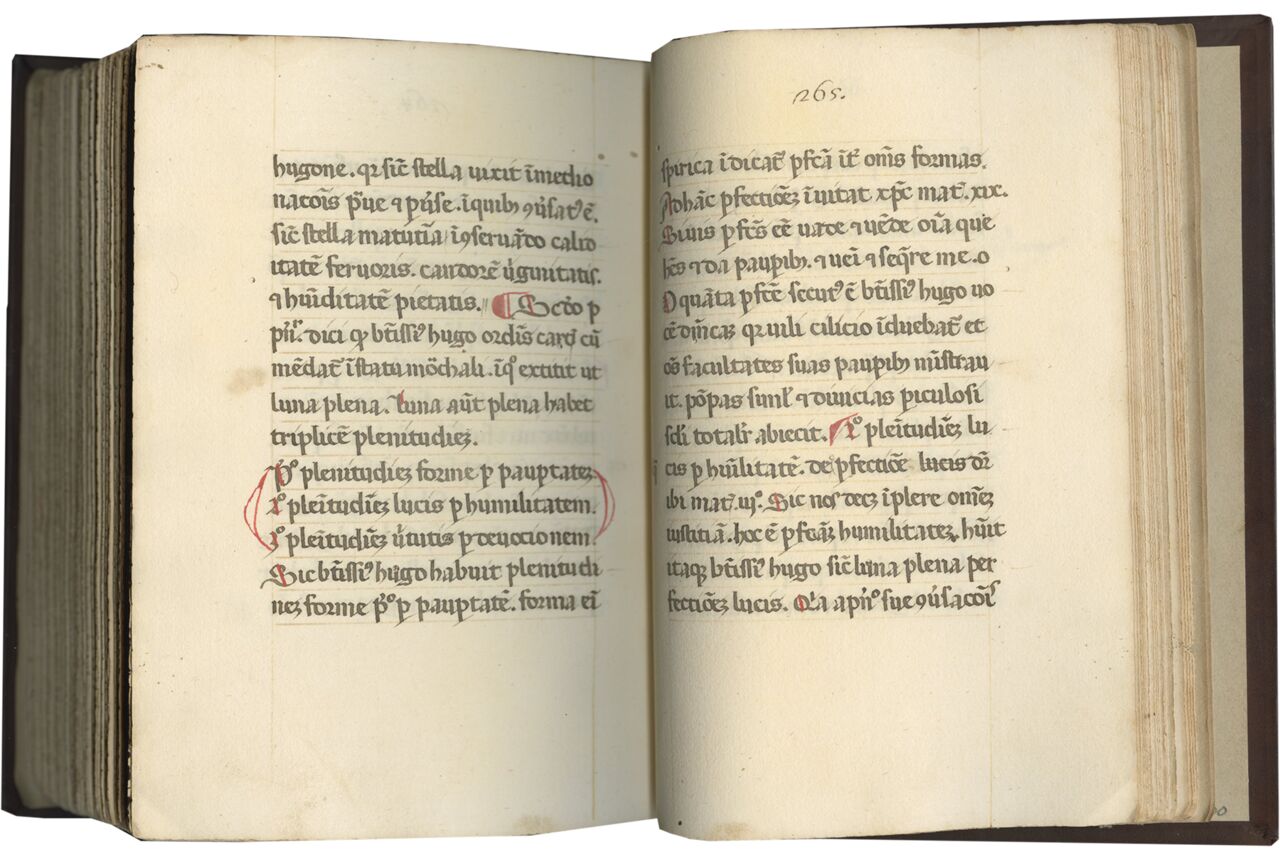 hugone. qr sic̄ stella uixit īmedio
nacōis p̄ue ⁊ ꝑúse. īquibꝫ ꝯúsat᷑ ē.
sic̄ stella matutīa īꝯseruādo calid
itatē feruoris. candorē úginitatis.
⁊ hūiditatē pietatis. ¶ Scđo p
pīī. dici qꝫ bt̄issiꝰ hugo ordīs carđ cū
mēdat᷑ īstatu mōchali. īqͦ extitit ut
luna plena. Luna aūt plena habet
triplicē plenitudīeꝫ.
Pͦ plenitudīeꝫ forme ꝑ pauꝑtateꝫ
2ͦ pleītudīeꝫ lucis ꝑ humilitatem.
3ͦ pleītudīeꝫ útutis ꝑ deuocionem.
Sic bt̄issiꝰ hugo habuit plenitudi
neꝫ forme p̄ͦ ꝑ pauꝑtatē. forma eī
265.
spirica īdicat᷑ ꝑfcā it᷑ om̄s formas.
Ad hāc ꝑfectiōeꝫ īuitat xp̄c mat᷑. xix.
Si uis ꝑfc̄s eē uade ⁊ uēde oīa que
hēs ⁊ da pauꝑibꝫ. ⁊ uei ⁊ seqr̄e me. o
O quāta ꝑfcē secutꝰ ē bt̄issiꝰ hugo uo
cē dīnicaꝫ qr uili cilicio īduebat᷑ et
oēs facultates suas pauꝑibꝫ mīstrau
it. pōpas siml̄ ⁊ diuicias piculosi
sc̄li totalr̄ abiecit. 2ͦ pleītudīeꝫ lu
cis ꝑ hūilitatē. de ꝑfectiōe lucis dr̄
ibi mat᷑. iijͦ. Sic nos deceꝫ īplere om̄eꝫ
iustitiā. hoc ē ꝑfcāꝫ humilitateꝫ. hūit
itaqꝫ bt̄issiꝰ hugo sic̄ luna plena per
fectiōeꝫ lucis. Qͥa a pīnͦ sue ꝯúsacōīs